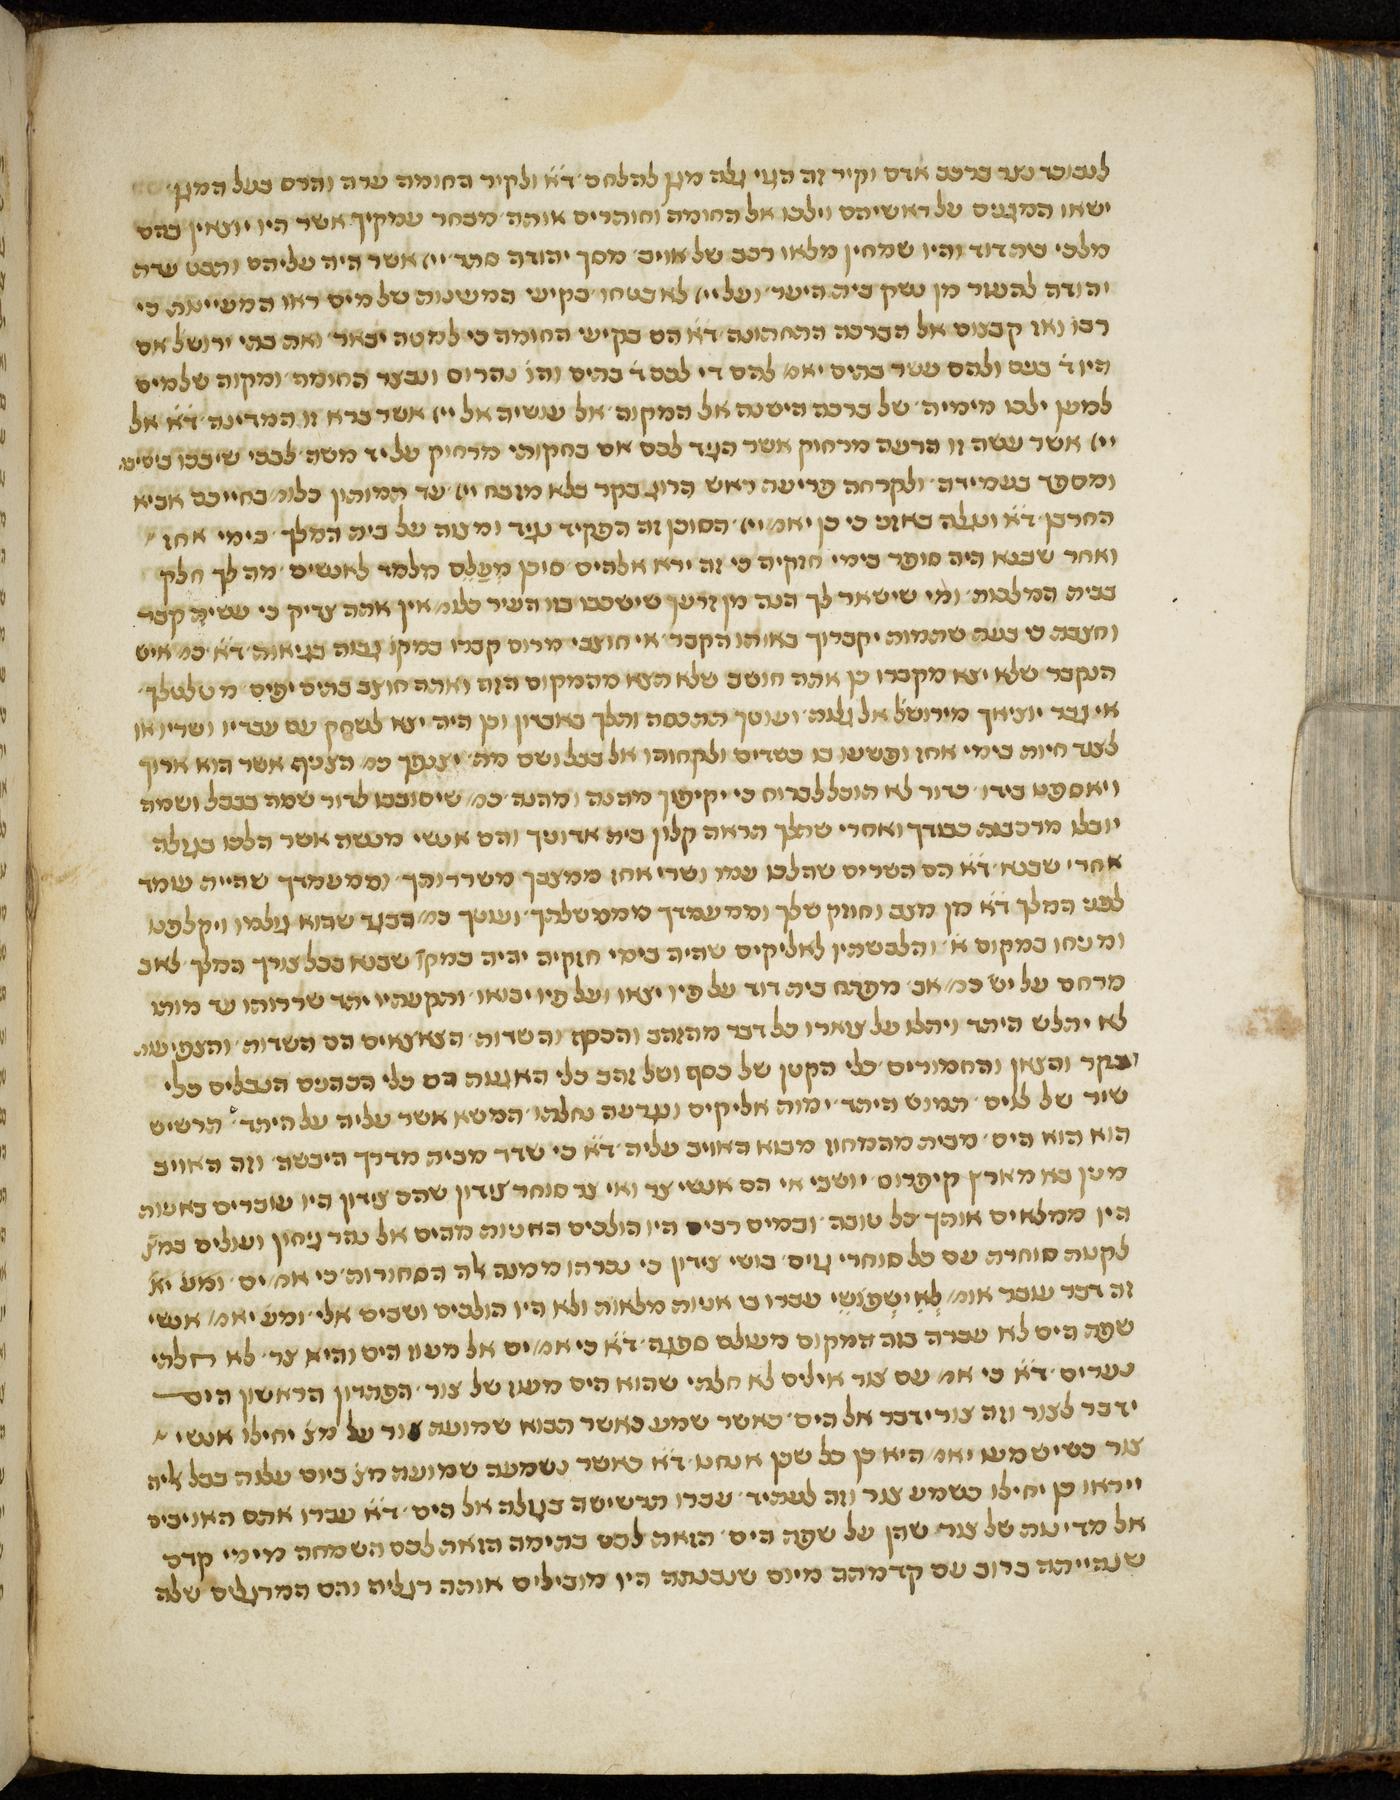 לנבוכד נצר ברכב אדם וקיר זה הגוי גלה מגן להלחם דא ולקיר החומה ערה והרס בעל המגן
ישאו המגנים על ראשיהם וילכו אל החומה וחותרים אותה מבחר עמקיך אשר היו יוצאין בהם
מלכי בית דוד והיו שמחין מלאו רכב של אויב מסך יהודה סתר ייי אשר היה עליהם ותבט עדת
יהודה להעזר מן נשק בית היער ועל ייי לא בטחו בקיעי המשענות של מים ראו המעיינות כי
רבו ואז קבצום אל הברכה התחתונה דא הם בקיעי החומה כי למטה יבאר ואת בתי ירושלם אם
היו ד בנים ולהם עשר בתים יאמ להם די לכם ד בתים והו נהרום ונבצר החומה ומקוה של מים
למען ילכו מימיה של ברכה הישנה אל המקוה אל עושיה אל ייי אשר ברא זו המדינה דא אל
ייי אשר עשה זו הרעה מרחוק אשר הגיד לכם אם בחקותי מרחוק על יד משה לבכי שיבכו בסים
ומספד בעמידה ולקרחה פריעת ראש הרוג בקר בלא מזבח ייי עד תמותון כלומ בחייכם אביא
החרבן דא ונגלה באזני כי כן יאמ ייי הסוכן זה הפקיד נגיד ומצוה על בית המלך בימי אחז
ואחר שבנא היה סופר בימי חזקיה כי זה ירא אלהים סוכן מעלם מלמד לאנשים מה לך חלק
בבית המלכות ומי שישאר לך הנה מן זרעך שישכבו בזו העיר כלומ אין אתה צדיק כי עשית קבר
וחצבת כי בעת שתמות יקברוך באותו הקבר אי חוצבי מרום קברו במקום גבוה בגיאות דא כמ איש
הנקבר שלא יצא מקברו כן אתה חושב שלא תצא מהמקום הזה ואתה חוצב בתים יפים מטלטלך
אי גבר יוציאך מירושלם אל גלות ועוטך תתכסה ותלך באוברון וכן היה יצא לשחק עם עבדיו ושריו או
לצוד חיות בימי אחז ופשטו בו כשדים ולקחוהו אל בבל ושם מת יצנפך כמ הצניף אשר הוא ארוך
ויאספנו בידו כדור לא תוכל לברוח כי יקיפוך מהנה ומהנה כמ שיסובבו לדור שמה בבבל ושמה
יובלו מרכבות כבודך ואחרי שתלך תראה קלון בית אדוניך והם אנשי מנשה אשר הלכו בגולה
אחרי שבנא דא הם השרים שהלכו עמו ושרי אחז ממצבך משררותך וממעמדך שהיית עומד
לפני המלך דא מן מצב וחוזק שלך וממעמדך מממשלתך ועוטך כמ הבגד שהוא גולמו ויקלפנו
ומניחו במקום א והלבשתיו לאליקים שהיה בימי חזקיה יהיה במקו שבנא בכל צורך המלך לאב
מרחם על יש כמ אב מפתח בית דוד על פיו יצאו ועל פיו יבואו ותקעתיו יתד שררותו עד מותו
לא יתלש היתד ויתלו על צוארו כל דבר מהזהב והכסף והשדות הצאצאים הם השדות והצפיעות
הבקר והצאן והחמורים כלי הקטן של כסף ושל זהב כלי האגנות הם כלי הכהנים הנבלים כלי
שיר של לוים תמוש היתד ימות אליקים ונגדעה נחלתו המשא אשר עליה על היתד תרשיש
הוא הוא הים מבית מהמחוז מבוא האויב עליה דא כי שדד מבית מדרך היבשה וזה האויב
מעין בא מארץ קיפרוס יושבי אי הם אנשי צר ואי צר סוחר צידון שהם צידון היו עוברים באניות
היו ממלאים אותך כל טובה ובמים רבים היו הולכים האניות מהים אל נהר גיחון ועולים במצ
לקנות סחורה עם כל סוחרי גוים בושי צידון כי נברתו ממנה אלה הסחורות כי אמ ים ומע יא
זה דבר עובר אומ לא ישפושי עברו בו אניות מלאות ולא היו הולכים ושבים אלי ומע יאמ אנשי
שפת הים לא עברה בזה המקום מעולם ספינה דא כי אמ ים אל מעוז הים והיא צר לא חלתי
נערים דא כי אמ עם צור אילים לא חלתי שהוא הים מעוז של צור הפתרון הראשון הים
ידבר לצור וזה צור ידבר אל הים כאשר שמע כאשר תבוא שמועת צור על מצ יחילו אנשי
צור כשישמעו יאמ היא כן כל שכן אנחנו דא כאשר נשמעה שמועת מצ ביום עלות בבל אליה
וייראו כן יחילו כשמע צור וזה לעתיד עברו תרשישה בגולה אל הים דא עברו אתם האויבים
אל מדינות של צור שהן על שפת הים הזאת לכם בהימה הזאת לכם השמחה מימי קדם
שנהייתה ברוב עם קדמתה מיום שנבנתה היו מובילים אותה רגליה והם המרגלים שלה